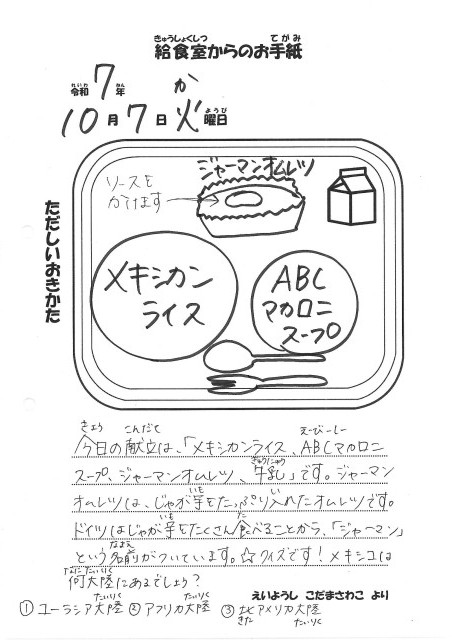 きゅうしょくしつ てがみ
給食室からのお手紙
れいわ ねん か
令和7年
がつ にち ようび
10月7日火曜日
ジャーマンオムレツ
ソースを
かけます
ただしいおきかた
メキシカン
ライス
ABC
マカロニ
スープ
きょう こんだて えーびーしー
今日の献立は、「メキシカンライス、ABCマカロニ
ぎゅうにゅう
スープ、ジャーマンオムレツ、牛乳」です。ジャーマン
いも い
オムレツは、じゃが芋をたっぷり入れたオムレツです。
いも た
ドイツはじゃが芋をたくさん食べることから、「ジャーマン」
なまえ
という名前がついています。☆クイズです!メキシコは
なにたいりく
何大陸にあるでしょう?
えいようし こだまさわこ より
たいりく たいりく
①ユーラシア大陸 ②アフリカ大陸 ③北アメリカ大陸
きた たいりく